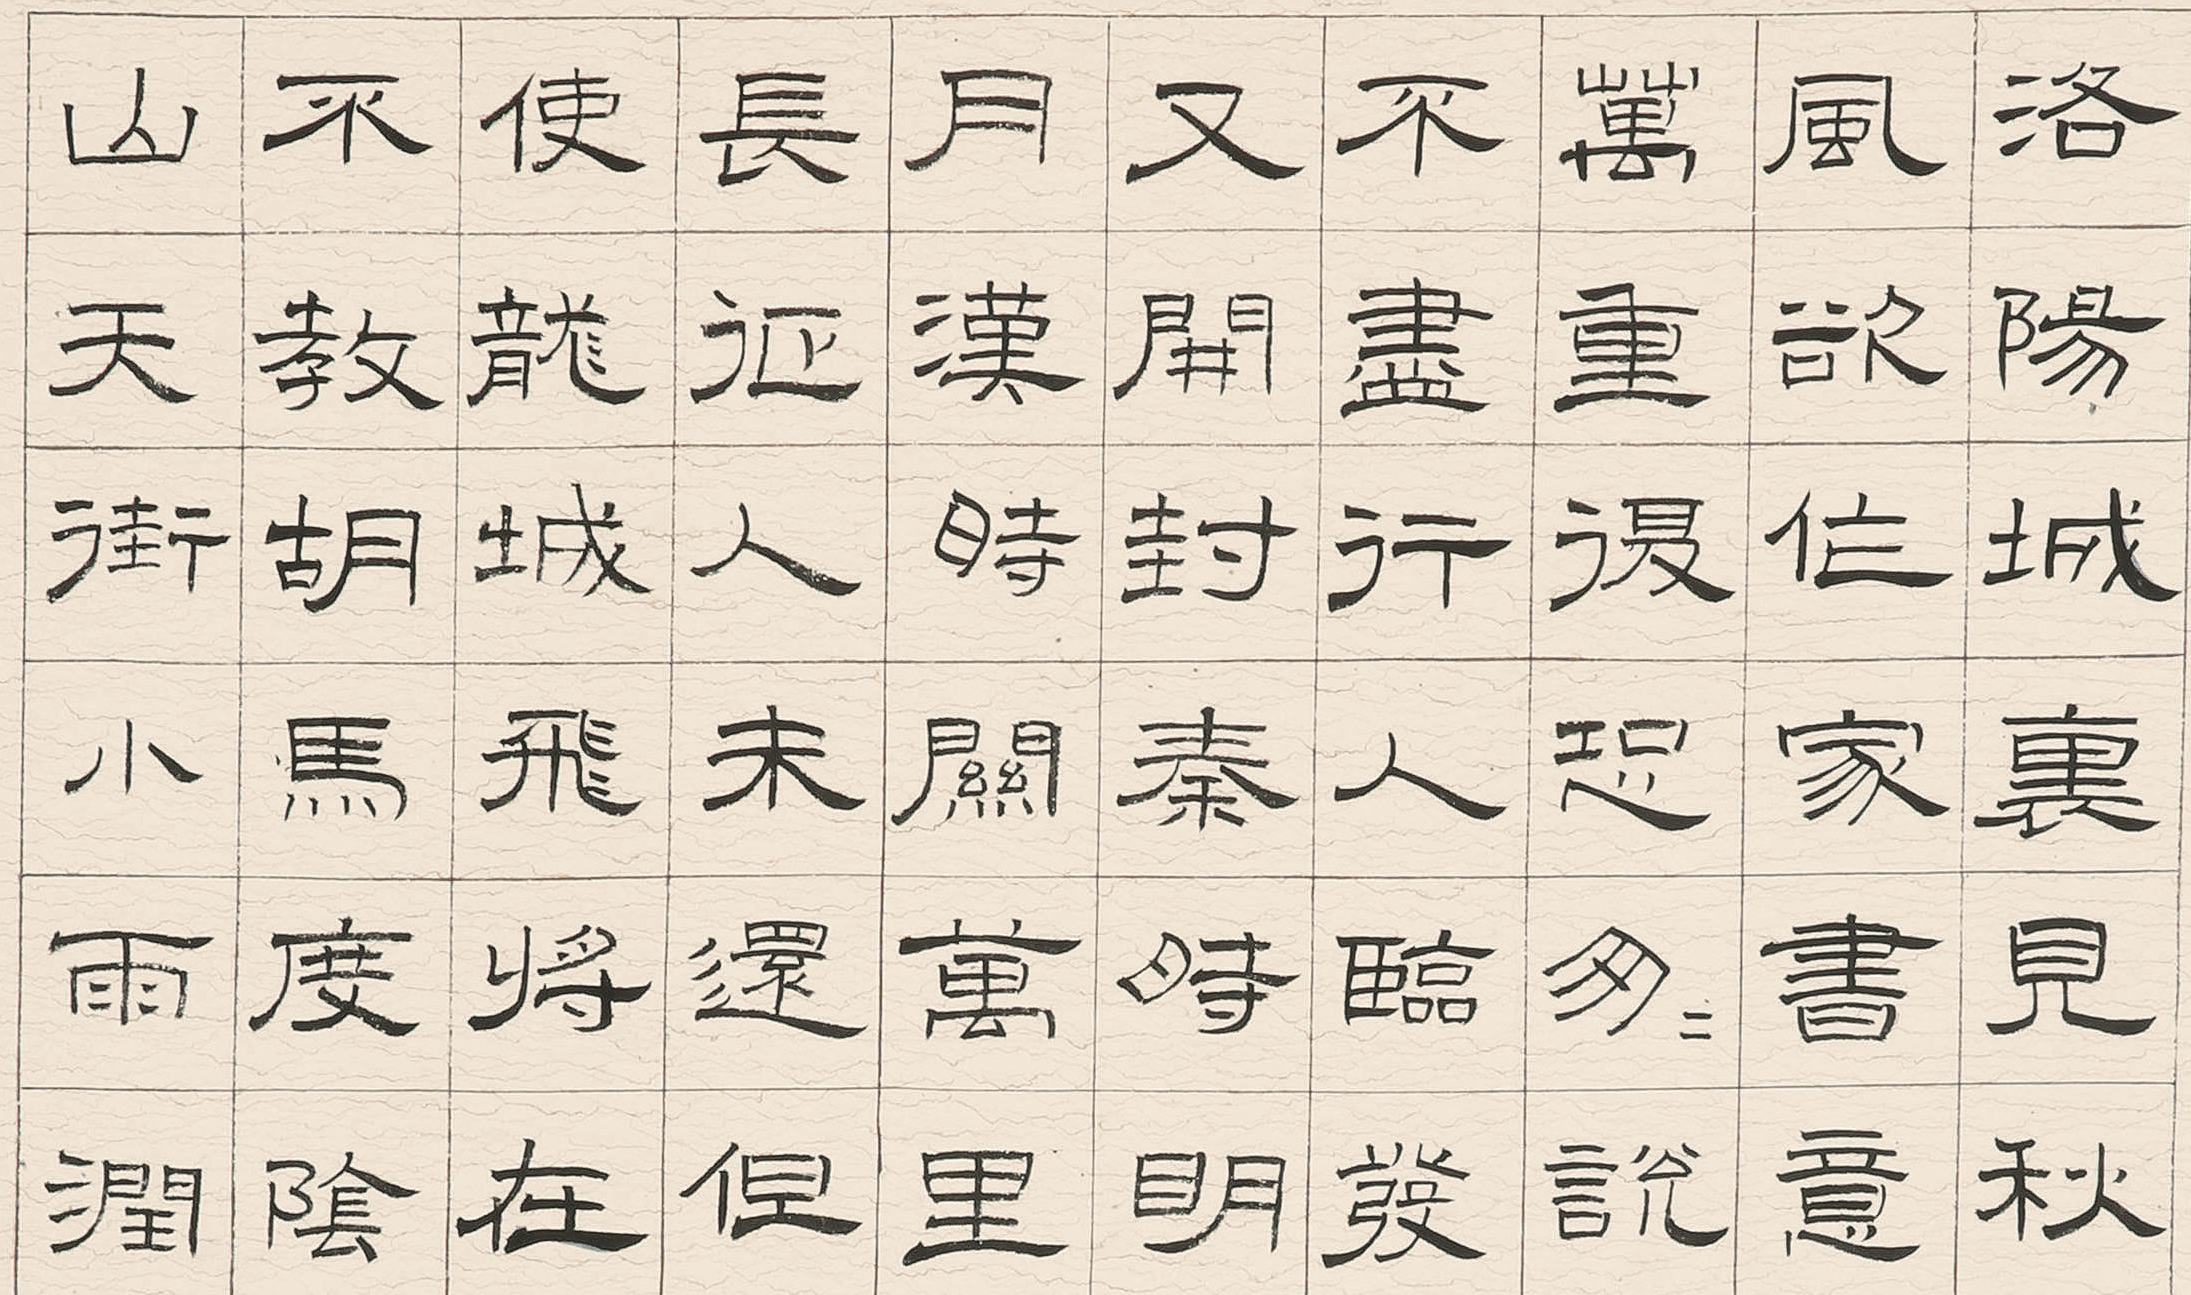 洛陽城裏見秋
風欲作家書意
萬重復恐匆〻說
不盡行人臨發
又開封秦時明
月漢時關萬里
長征人未還但
使龍城飛將在
不教胡馬度陰
山天街小雨潤